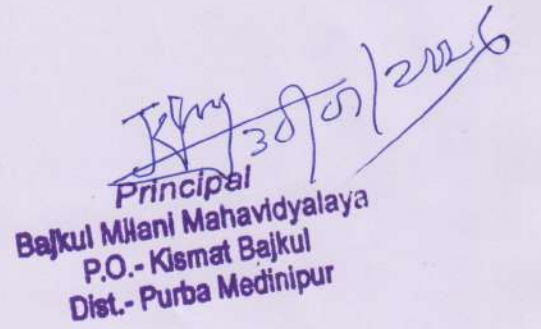 Principal
Bajkul Milani Mahavidyalaya
P.O.- Kismat Bajkul
Dist.- Purba Medinipur